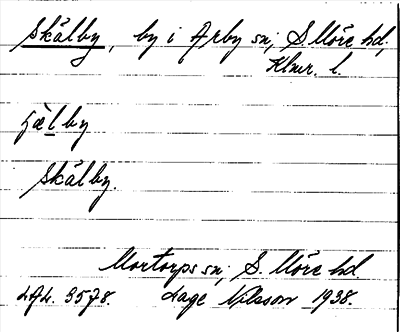 Skälby, by i Arby sn, S. Möre hd,
Klmr. l.
Skälby.
Mortorps sn, S. Möre hd
LAL. 3578. Lage Nilsson 1938.